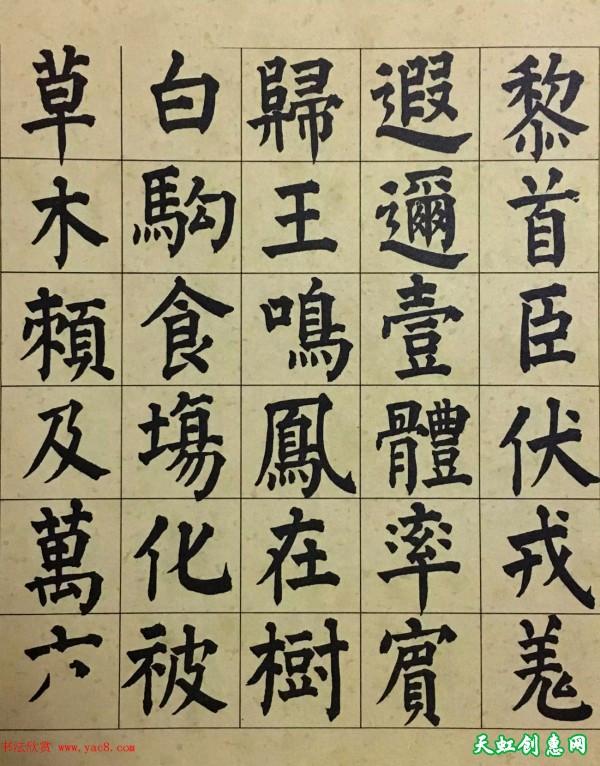 黎首臣伏戎羌
遐邇壹體率賓
歸王鳴鳳在樹
白駒食塲化被
草木賴及萬
书法欣赏 www.yac8.com
天虹创惠网